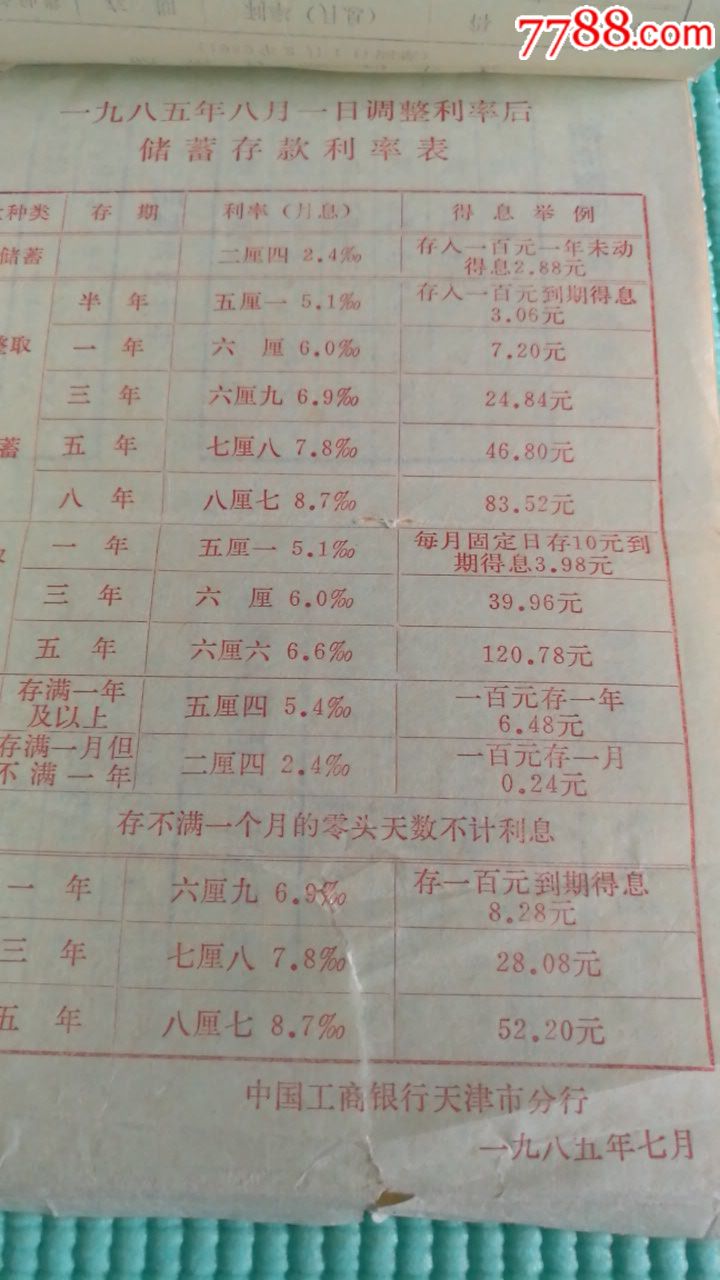 7788.com
一九八五年八月一日调整利率后
储蓄存款利率表
种类 存期 利率（月息） 得息举例
储蓄 二厘四 2.4‰ 存入一百元一年未动
得息2.88元
半年 五厘一 5.1‰ 存入一百元到期得息
3.06元
整取 一年 六厘 6.0‰ 7.20元
三年 六厘九 6.9‰ 24.84元
蓄 五年 七厘八 7.8‰ 46.80元
八年 八厘七 8.7‰ 83.52元
取 一年 五厘一 5.1‰ 每月固定日存10元到
期得息3.98元
三年 六厘 6.0‰ 39.96元
五年 六厘六 6.6‰ 120.78元
存满一年
及以上 五厘四 5.4‰ 一百元存一年
6.48元
存满一月但
不满一年 二厘四 2.4‰ 一百元存一月
0.24元
存不满一个月的零头天数不计利息
一年 六厘九 6.9‰ 存一百元到期得息
8.28元
三年 七厘八 7.8‰ 28.08元
五年 八厘七 8.7‰ 52.20元
中国工商银行天津市分行
一九八五年七月